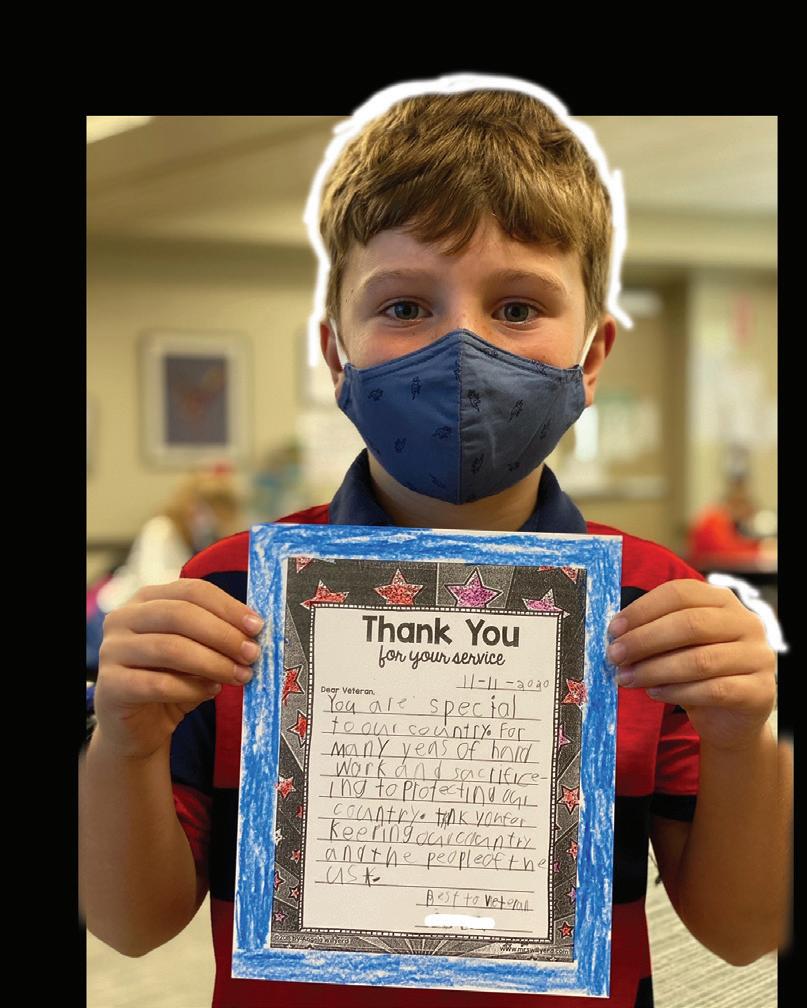 Thank You
for your service
11-11-2020
Dear Veteran,
You are special
to our country. For
many yens of hard
work and sacrifice-
ing to Protecting our
country. tnk you for
Keering our country
and the people of the
USA.
Best to Veteran